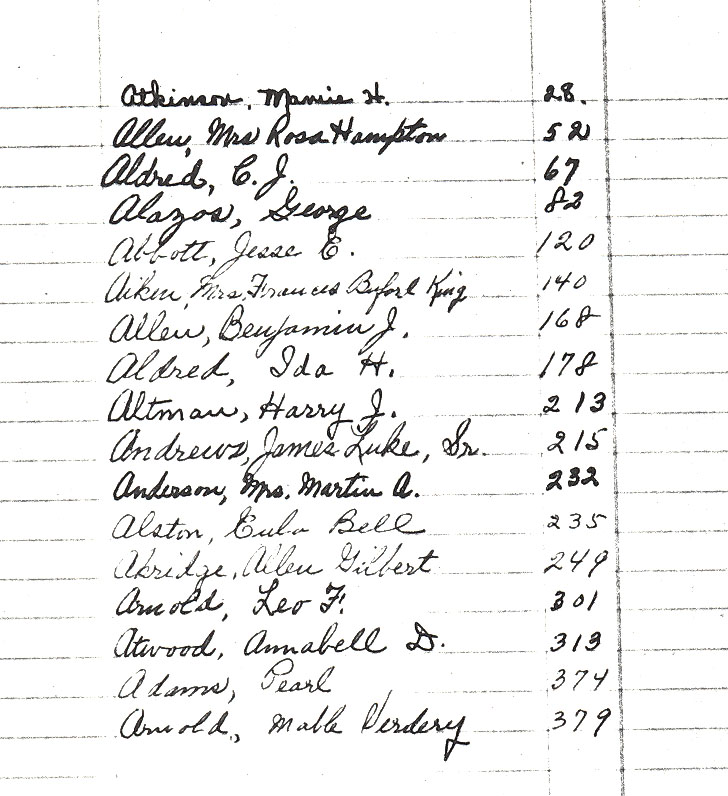 Atkinson, Mamie H. 28.
Allen, Mrs Rosa Hampton 52
Aldred, C. J. 67
Alazos, George 82
Abbott, Jesse E. 120
Aiken, Mrs. Frances Buford King 140
Allen, Benjamin J. 168
Aldred, Ida H. 178
Altman, Harry J. 213
Andrews, James Luke, Sr. 215
Anderson, Mrs. Martin A. 232
Alston, Eula Bell 235
Akridge, Allen Gilbert 249
Arnold, Leo F. 301
Atwood, Annabell D. 313
Adams, Pearl 374
Arnold, Mable Verdery 379